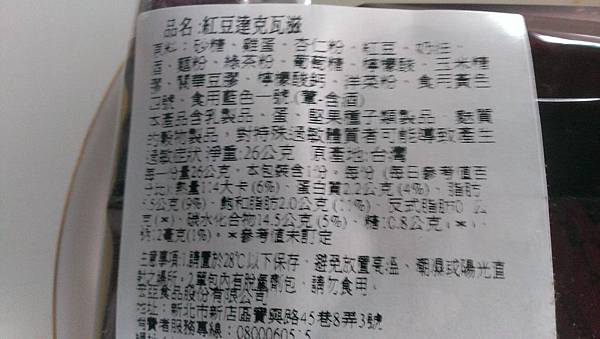 品名:紅豆達克瓦滋
原料:砂糖、雞蛋、杏仁粉、紅豆、奶油、
麵粉、綠茶粉、葡萄糖、檸檬酸、玉米糖
膠、關華豆膠、檸檬酸鈣、洋菜粉、食用黃色
四號、食用藍色一號(葷-含酒)
本產品含乳製品、蛋、堅果種子類製品、麩質
的穀物製品,對特殊過敏體質者可能導致產生
過敏症狀 淨重:26公克 原產地:台灣
每一份量26公克,本包裝含1份。每份(每日參考值百
分比)熱量114大卡(6%)、蛋白質2.2公克(4%)、脂肪
5公克(9%)、飽和脂肪2.0公克(11%)、反式脂肪0公
克(*)、碳水化合物14.5公克(5%)、糖:0.8公克(*)、
鈉12毫克(1%)。*參考值未訂定
注意事項:1.請置於28℃以下保存,避免放置高溫、潮濕或陽光直
射之場所。2.單包內有脫氧劑包,請勿食用。
食品股份有限公司
地址:新北市新店區寶興路45巷8弄3號
消費者服務專線:08000605